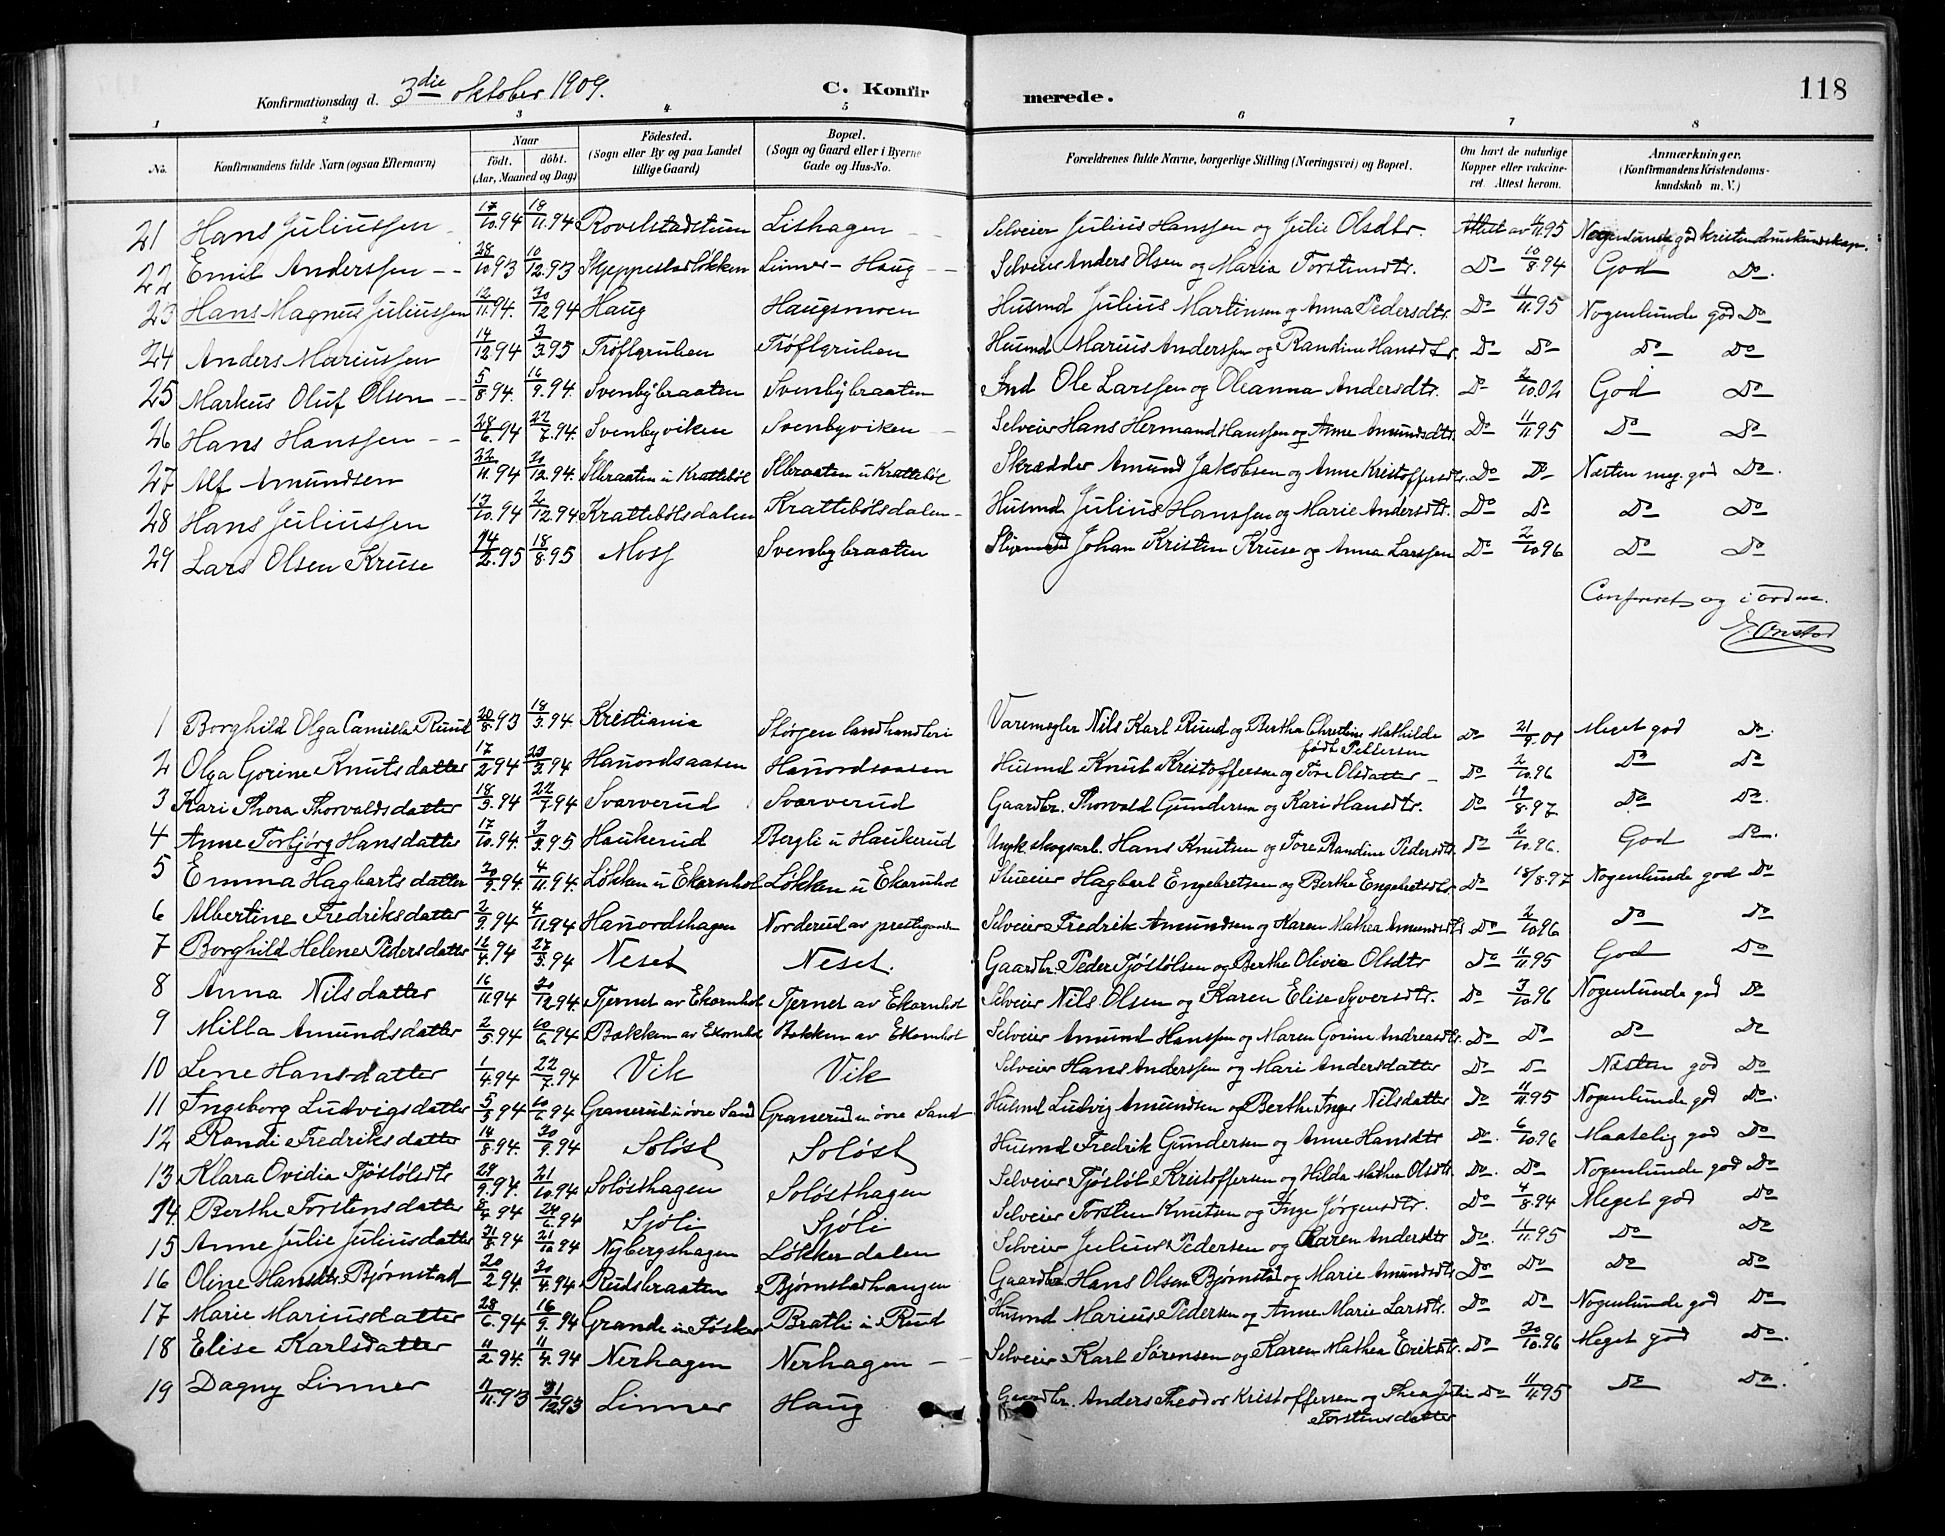 118
Konfirmationsdag d. 3die oktober 1909. C. Konfirmerede.
1 2 3 4 5 6 7 8
No. Konfirmandens fulde Navn (ogsaa Efternavn) Naar födt. döbt. (Aar, Maaned og Dag) Födested. (Sogn eller By og paa Landet tillige Gaard) Bopæl. (Sogn og Gaard eller i Byerne Gade og Hus-No. Forældrenes fulde Navne, borgerlige Stilling (Næringsvei) og Bopæl. Om havt de naturlige Kopper eller vaccineret. Attest herom. Anmærkninger. (Konfirmandens Kristendomskundskab m. V.)
21 Hans Juliussen 17/10 94 18/11 94 Rovelstadstuen Lishagen Selveier Julius Hanssen og Julie Olsdtr. Attest av 11/11 95 Nogenlunde god kristendomskundskap.
22 Emil Anderssen 28/10 93 10/12 93 Skjeppestadløkken Linner-Haug Selveier Anders Olsen og Maria Torstensdtr. Do 10/8 94 God Do.
23 Hans Magnus Juliussen 12/11 94. 30/12 94 Haug Haugsmoen Husmd Julius Martinsen og Anna Pedersdtr. Do 11/11 95 Nogenlunde god Do
24 Anders Mariussen 14/12 94 3/3 95 Trøflgruben Trøflgruben Husmd Marius Anderssen og Randine Hansdtr. Do Do Do Do
25 Markus Oluf Olsen 5/8 94. 16/9 94. Svenbybraaten Svenbybraaten Ind Ole Larssen og Oleanna Andersdtr. Do 2/10 02 God Do
26 Hans Hanssen 28/6 94 22/7 94. Svenbyviken Svenbyviken Selveier Hans Hermand Hanssen og Anne Amundsdtr. Do 11/11 95 Do Do
27 Alf Amundsen 22/11 94 30/12 94. Slbraaten u Krattebøl Slbraaten u Krattebøl Skrædder Amund Jakobsen og Anne Kristoffersdtr. Do Do Næsten meg. god Do.
28 Hans Juliussen 17/10 94 2/12 94 Krattebölsdalen Krattebölsdalen Husmd Julius Hanssen og Marie Andersdtr. Do Do Do Do
29 Lars Olsen Kruse 14/2 95 18/8 95 Moss Svenbybraaten Styrmand Johan Kristen Kruse og Anna Larssen Do 2/10 96 Do Do
Confereret og i orden.
E. Onstad
1 Borghild Olga Camilla Ruud 20/8 93 18/3 94 Kristiania Störgen landhandleri Varemegler Nils Karl Ruud og Bertha Christine Mathilde født Pettersen Do 21/9 01 Meget god Do.
2 Olga Gorine Knutsdatter 17/2 94 23/3 94 Hanordsaasen Hanordsaasen Husmd Knut Kristoffersen og Tore Olsdatter Do 2/10 96 Do Do
3 Kari Thora Thorvaldsdatter 18/3 94 22/7 94 Svarverud Svarverud Gaardbr. Thorvald Gundersen og Kari Hansdtr. Do 19/8 97 Do Do.
4 Anne Torbjörg Hansdatter 17/10 94. 3/3 95 Haukerud Bergli u Haukerud Ungk. skogsarb. Hans Knutsen og Tore Randine Pedersdtr. Do 2/10 96. God Do.
5 Emma Hagbartsdatter 30/9 94. 4/11 94. Løkken u Ekornhol Løkken u Ekornhol Stueier Hagbart Engebretsen og Berthe Engebretsdtr Do 18/8.97 Nogenlunde god Do
6 Albertine Fredriksdatter 2/9 94 4/11 94 Hanordshagen Norderud av prestegaarden Selveier Fredrik Amundsen og Karen Mathea Amundsdtr Do 2/10 96 Do Do
7 Borghild Helene Pedersdatter 12/4 94 27/5 94 Neset Neset. Gaardbr. Peder Tjöstölsen og Berthe Olivie Olsdtr Do 11/11 95 God Do
8 Anna Nilsdatter 16/11 94 30/12 94. Tjernet av Ekornhol Tjernet av Ekornhol Selveier Nils Olsen og Karen Elise Syversdtr. Do 3/10 96 Nogenlunde god Do
9 Milla Amundsdatter 2/5 94 10/6 94 Bakken av Ekornhol Bakken av Ekornhol Selveier Amund Hanssen og Maren Gorine Andreasdtr. Do Do Do Do
10 Lene Hansdatter 1/4 94 22/7 94 Vik Vik Selveier Hans Anderssen og Mari Andersdatter Do Do Næsten god Do
11 Ingeborg Ludvigsdatter 5/3 94 10/6 94 Granerud u övre Sand Granerud u övre Sand Husmd Ludvig Amundsen og Berthe Inger Nilsdatter Do 11/11 95 Nogenlunde god Do.
12 Randi Fredriksdatter 14/8 94. 30/9 94 Soløst Soløst Husmd Fredrik Gundersen og Anne Hansdtr Do. 6/10 96 Maatelig god Do
13 Klara Ovidia Tjöstölsdtr 29/9 94. 21/10 94 Solösthagen Solösthagen Selveier Tjöstöl Kristoffersen og Hilda Mathea Olsdtr Do. Do Nogenlunde god Do
14. Berthe Torstensdatter 8/4 94 24/6 94 Sjöli Sjöli Selveier Torsten Knutsen og Inge Jörgensdtr. Do 4/8 94 Meget god Do
15 Anne Julie Juliusdatter 31/8 94 21/10 94 Nybergshagen Løkkerdalen Selveier Julius Pedersen og Karen Andersdtr Do. 11/11 95 Do Do
16 Oline Hansdtr. Bjørnstad 20/2 94. 30/4 94 Rudsbraaten Bjørnstadhaugen Gaardbr. Hans Olsen Bjørnstad og Marie Amundsdtr Do Do Do Do
17 Marie Mariusdatter 28/6 94 16/9 94 Grande u Fosker Bratli u Rud Husmd Marius Pedersen og Anne Marie Larsdtr. Do Do Nogenlunde god Do
18 Elise Karlsdatter 11/2 94. 11/4 94 Nerhagen Nerhagen Selveier Karl Sørensen og Karen Mathea Eriksdtr. Do 30/10 96 Meget god Do.
19 Dagny Linner 11/11 93 31/12 93 Linner Haug Gaardbr. Anders Theodor Kristoffersen og Thea Julie Torstensdatter Do 11/4 95 Do Do.